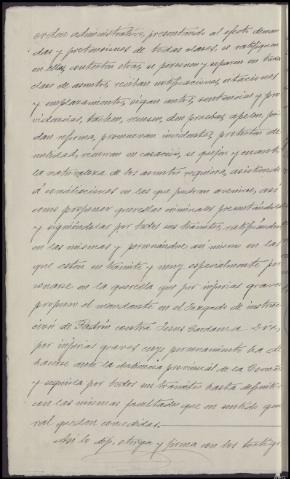 orden administrativo, presentando al efecto deman-
das y pretensiones de todas clases, se ratifiquen
en ellas, contesten otras, se personen y separen en toda
clase de asuntos, reciban notificaciones, citaciones
y emplazamientos, oigan autos, sentencias y pro-
videncias, tachen, recusen, den pruebas, apelen, pi-
dan reforma, promuevan incidentes, protesten de
nulidad, recurran en casación, en queja y cuanto
la naturaleza de los asuntos requiera, asistiendo
á conciliaciones en las que puedan avenirse, así
como proponer querellas criminales presentándolas
y siguiéndolas por todos sus trámites, ratificándose
en las mismas y personándose así mismo en las
que estén en trámite y muy especialmente per
sonarse en la querella que por injurias graves
propuso el mandante en el Juzgado de instruc
ción de Padrón contra Jesús
por injurias graves cuyo
ante la Audiencia provincial de la Coruña
y seguirla por todos sus trámites hasta definitiva
con las mismas facultades que en sentido gene
ral quedan concedidas.
Así lo dijo, otorga y firma con los testigos